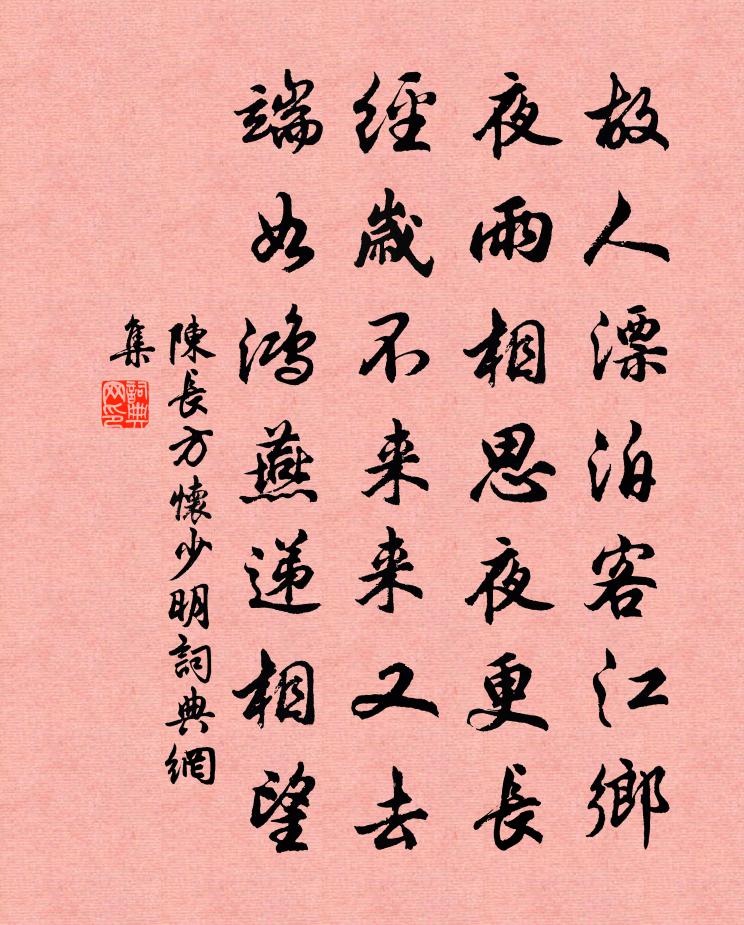 故人漂泊客江鄉
夜雨相思夜更長
經歲不来来又去
端如鴻燕递相望
陳長方懷少明詞典網
集
詞典網印